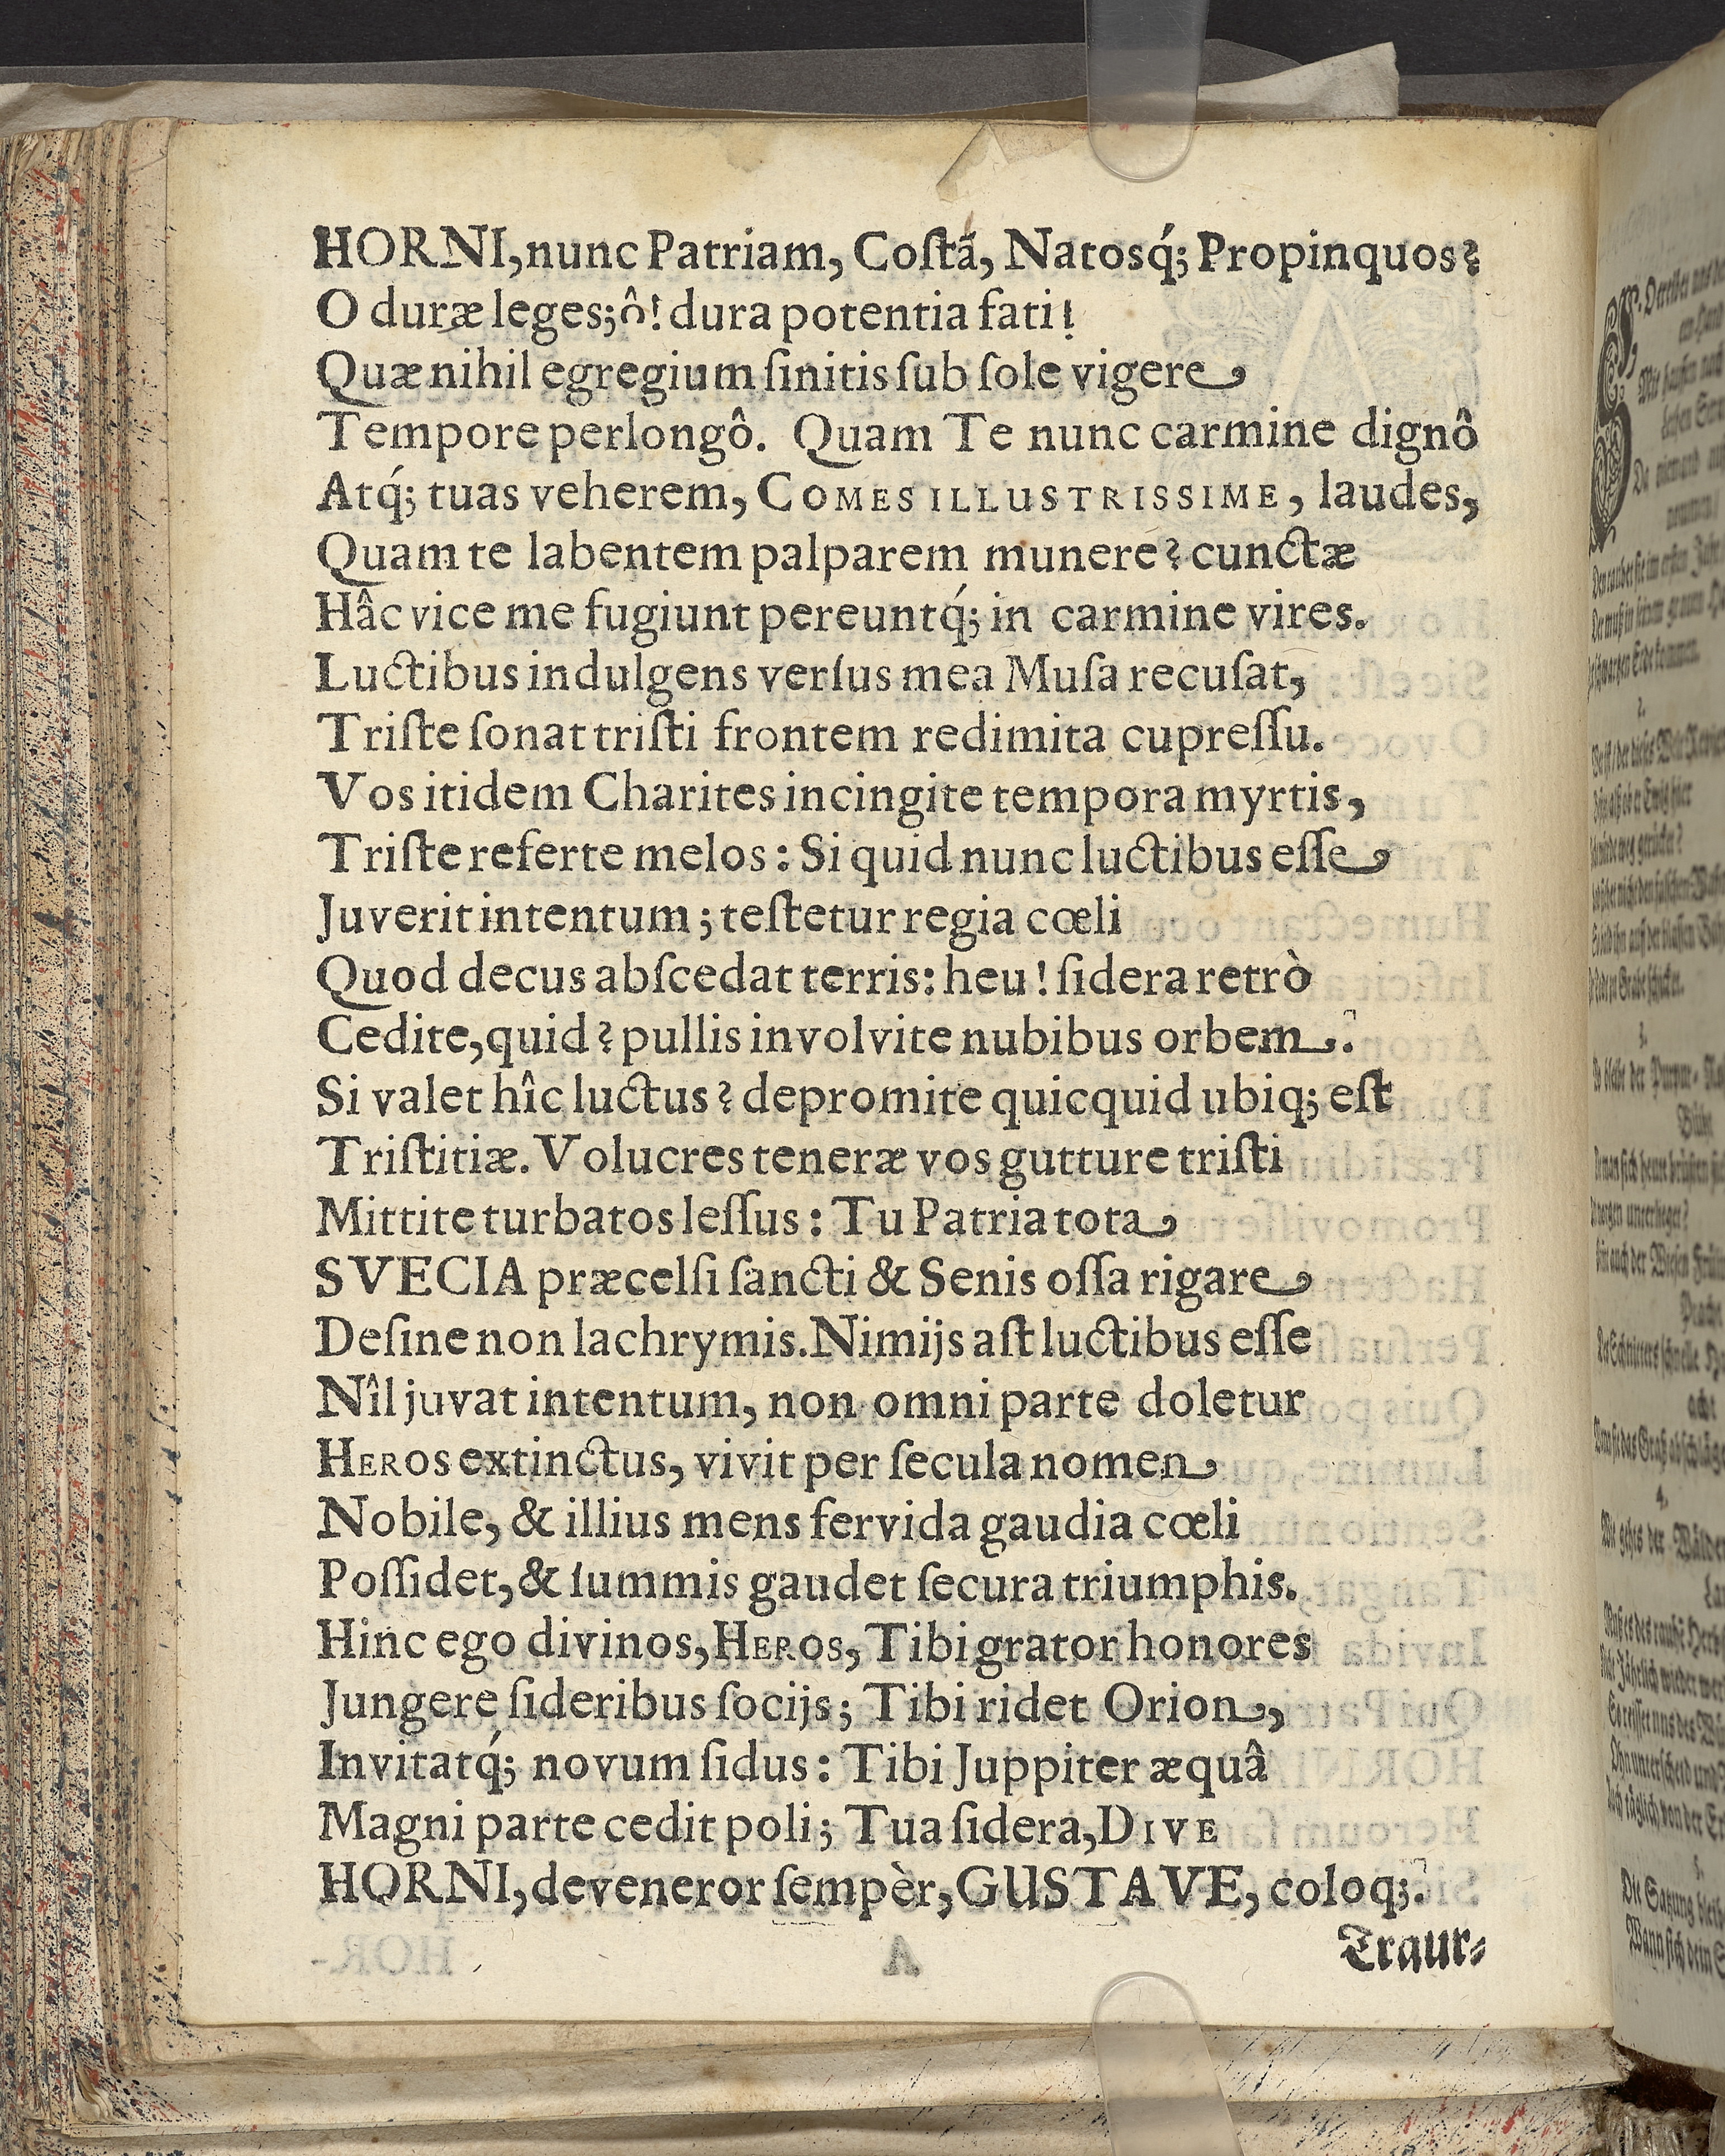 HORNI, nunc Patriam, Coſtã, Natosq́; Propinquos?
O duræ leges; ô! dura potentia fati!
Quæ nihil egregium ſinitis ſub ſole vigere
Tempore perlongô. Quam Te nunc carmine dignô
Atq́; tuas veherem, COMES ILLUSTRISSIME, laudes,
Quam te labentem palparem munere? cunctæ
Hâc vice me fugiunt pereuntq́; in carmine vires.
Luctibus indulgens verſus mea Muſa recuſat,
Triſte ſonat triſti frontem redimita cupreſſu.
Vos itidem Charites incingite tempora myrtis,
Triſte referte melos: Si quid nunc luctibus eſſe
Juverit intentum; teſtetur regia cœli
Quod decus abſcedat terris: heu! ſidera retrò
Cedite, quid? pullis involvite nubibus orbem.
Si valet hîc luctus? depromite quicquid ubiq; eſt
Triſtitiæ. Volucres teneræ vos gutture triſti
Mittite turbatos leſſus: Tu Patria tota
SVECIA præcelſi ſancti & Senis oſſa rigare
Deſine non lachrymis. Nimijs aſt luctibus eſſe
Nîl juvat intentum, non omni parte doletur
HEROS extinctus, vivit per ſecula nomen
Nobile, & illius mens fervida gaudia cœli
Poſſidet, & ſummis gaudet ſecura triumphis.
Hinc ego divinos, HEROS, Tibi grator honores
Jungere ſideribus ſocijs; Tibi ridet Orion,
Invitatq́; novum ſidus: Tibi Juppiter æquâ
Magni parte cedit poli; Tua ſidera, DIVE
HORNI, deveneror ſempèr, GUSTAVE, coloq;.
Traur⸗